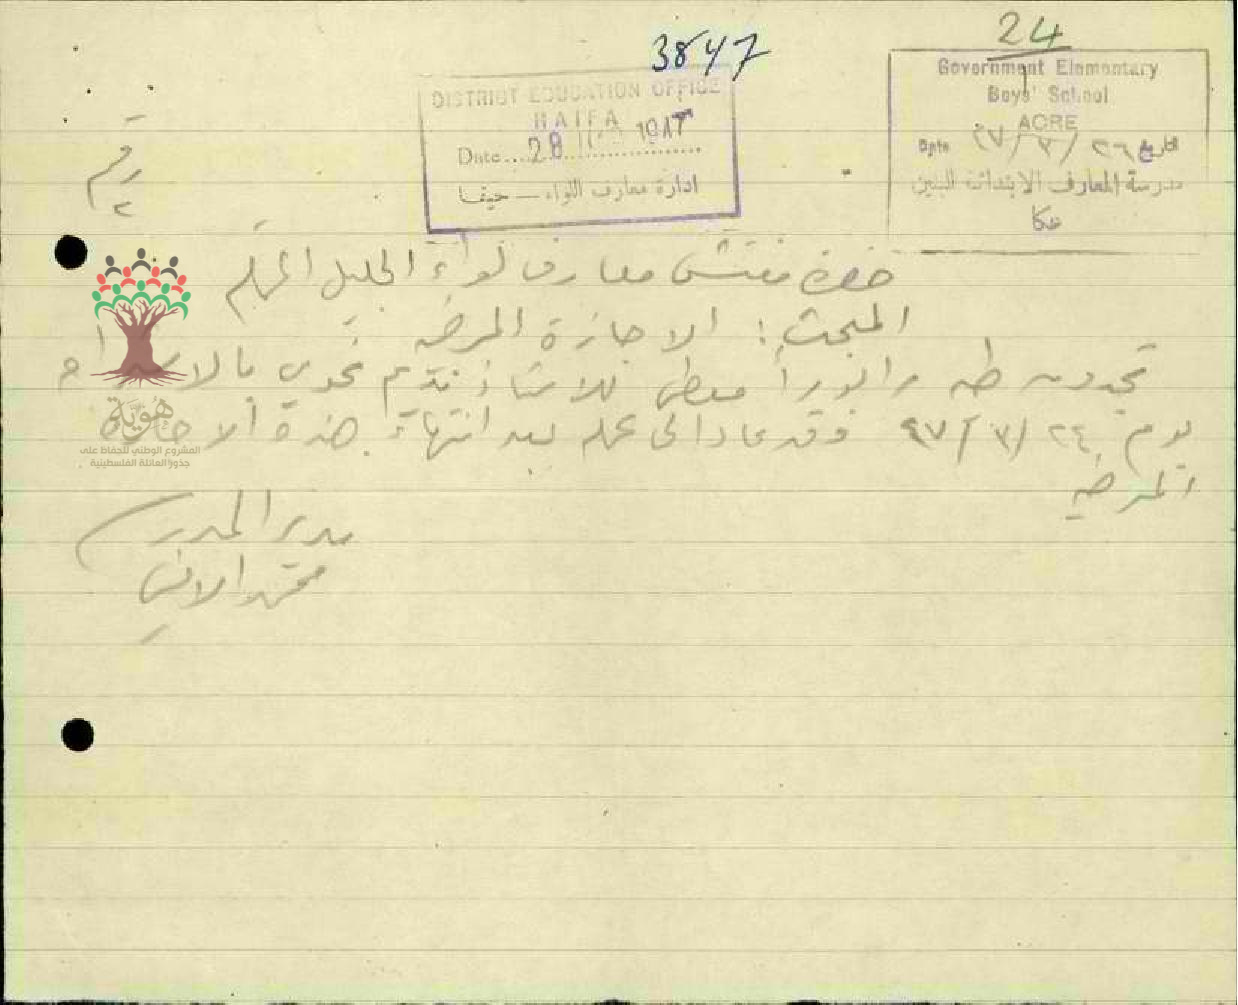 24
3847
Government Elementary
Boys' School
ACRE
Date ٢٦/٣/٤٧ التاريخ
مدرسة المعارف الابتدائية للبنين
عكا
DISTRICT EDUCATION OFFICE
HAIFA
Date 28 1947
ادارة معارف اللواء — حيفا
حضرة مفتش معارف لواء الجليل المحترم
المبحث : الاجازة المرضية
تجدون طيه رابورا معطى للاستاذ نديم نحوي بالاستخدام
يوم ٢٤/٣/٤٧ وقد عاد الى عمله بعد انتهاء هذه الاجازة
المرضيه
مدير المدرسة
هوية
المشروع الوطني للحفاظ على
جذور العائلة الفلسطينية